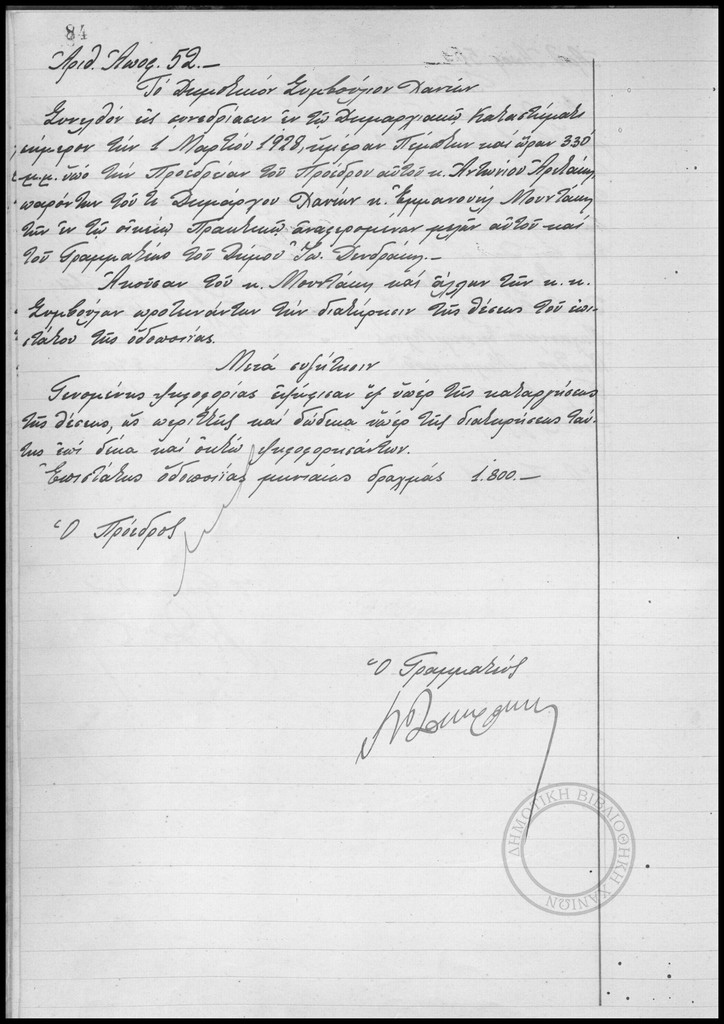 84
Ἀριθ. Ἀποφ. 52.—
Τό Δημοτικόν Συμβούλιον Χανίων
Συνελθόν εἰς συνεδρίασιν ἐν τῷ Δημαρχιακῷ Καταστήματι
σήμερον τήν 1 Μαρτίου 1928, ἡμέραν Πέμπτην καί ὥραν 330΄
μ.μ. ὑπό τήν Προεδρείαν τοῦ Προέδρου αὐτοῦ κ. Ἀντωνίου
παρόντων τοῦ τε Δημάρχου Χανίων κ. Ἐμμανουήλ Μουντάκη
τῶν ἐν τῷ οἰκείῳ Πρακτικῷ ἀναφερομένων μελῶν αὐτοῦ καί
τοῦ Γραμματέως τοῦ Δήμου Ἰω. Δενδράκη.—
Ἀκοῦσαν τοῦ κ. Μουντάκη καί ἄλλων τῶν κ. κ.
Συμβούλων προτεινάντων τήν διατήρησιν τῆς θέσεως τοῦ ἐπι-
στάτου τῆς ὁδοποιΐας.
Μετά συζήτησιν
Γενομένης ψηφοφορίας ἐψήφισαν ἕξ ὑπέρ τῆς καταργήσεως
τῆς θέσεως, ὡς περιττῆς καί δώδεκα ὑπέρ τῆς διατηρήσεως ταύ-
της ἐπί δέκα καί ὀκτώ ψηφοφορησάντων.
Ἐπιστάτης ὁδοποιΐας μηνιαίως δραχμάς 1.800.—
Ὁ Πρόεδρος
Ὁ Γραμματεύς
ΔΗΜΟΤΙΚΗ ΒΙΒΛΙΟΘΗΚΗ ΧΑΝΙΩΝ